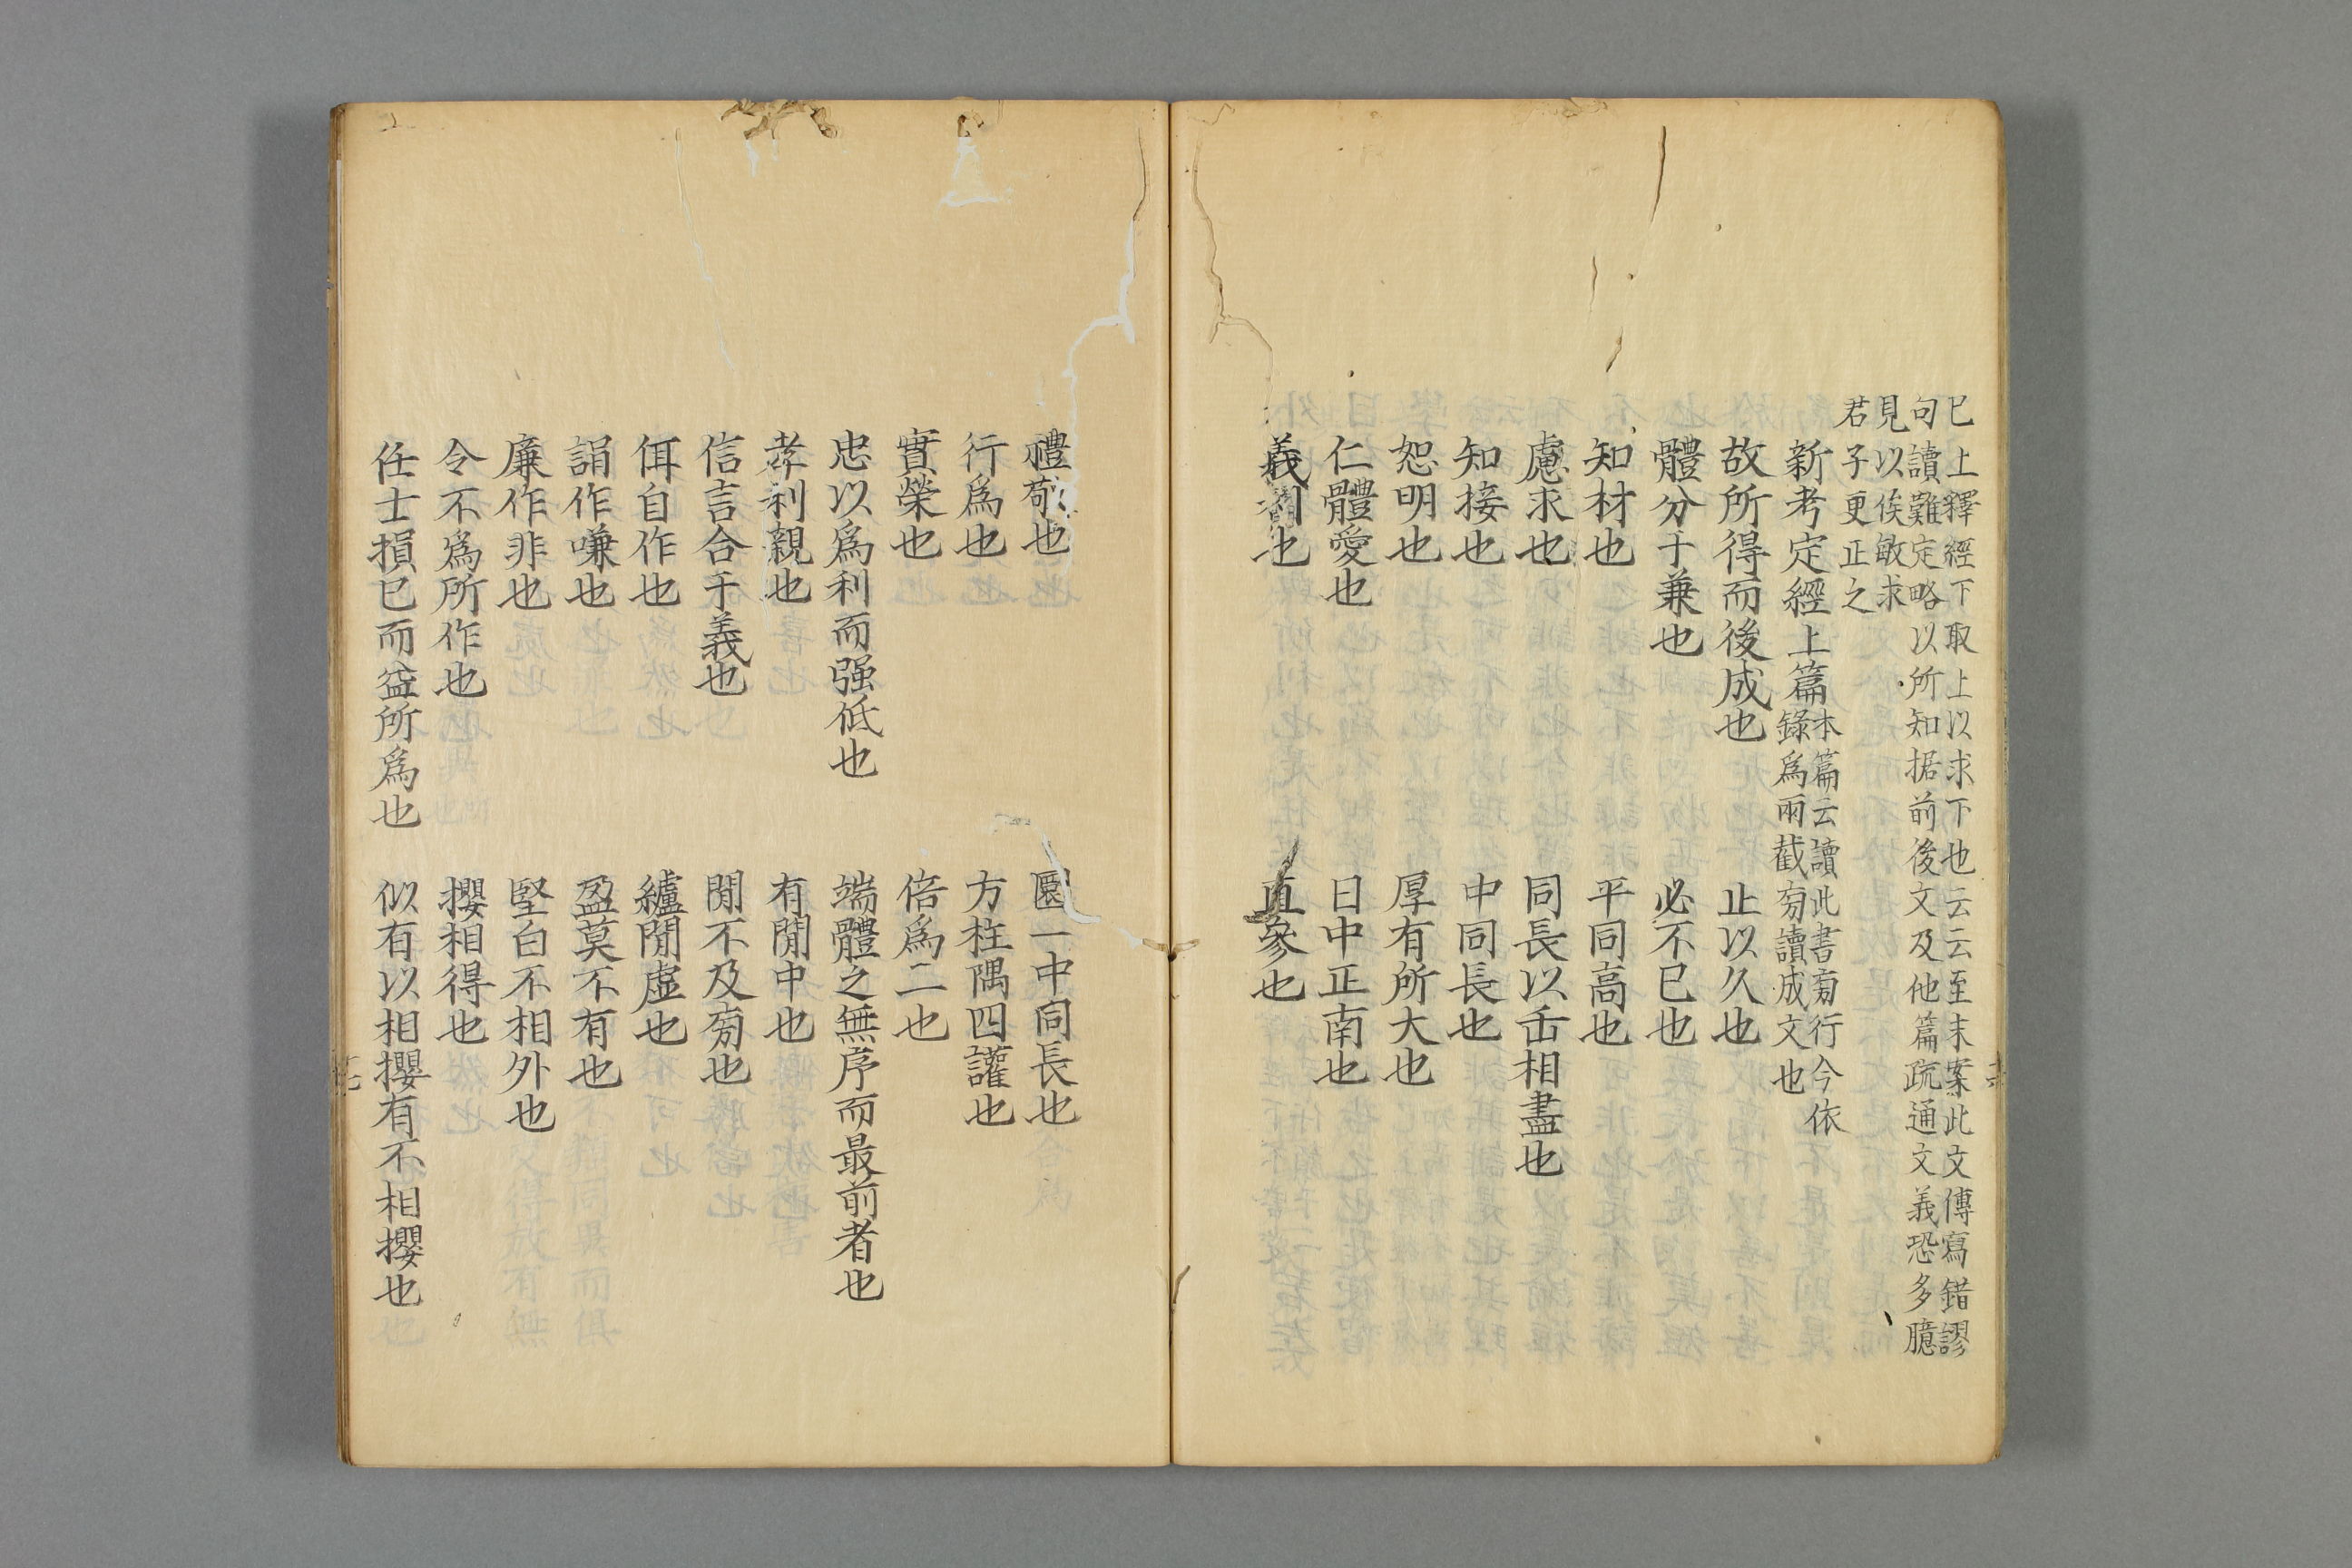 已上釋經下取上以求下也云云至末案此文傳寫錯謬
句讀難定略以所知据前後文及他篇疏通文義恐多臆
見以俟敏求
君子更正之
新考定經上篇
本篇云讀此書㫄行今依
錄爲兩截㫄讀成文也
故所得而後成也 止以久也
體分于兼也 必不已也
知材也 平同高也
慮求也 同長以缶相盡也
知接也 中同長也
恕明也 厚有所大也
仁體愛也 日中正南也
義利也 直參也
禮敬也 圜一中同長也
行爲也 方柱隅四讙也
實榮也 倍爲二也
忠以爲利而强低也 端體之無序而最前者也
孝利親也 有閒中也
信言合于義也 閒不及㫄也
佴自作也 纑閒虛也
誚作嗛也 盈莫不有也
廉作非也 堅白不相外也
令不爲所作也 攖相得也
任士損已而益所爲也 似有以相攖有不相攖也